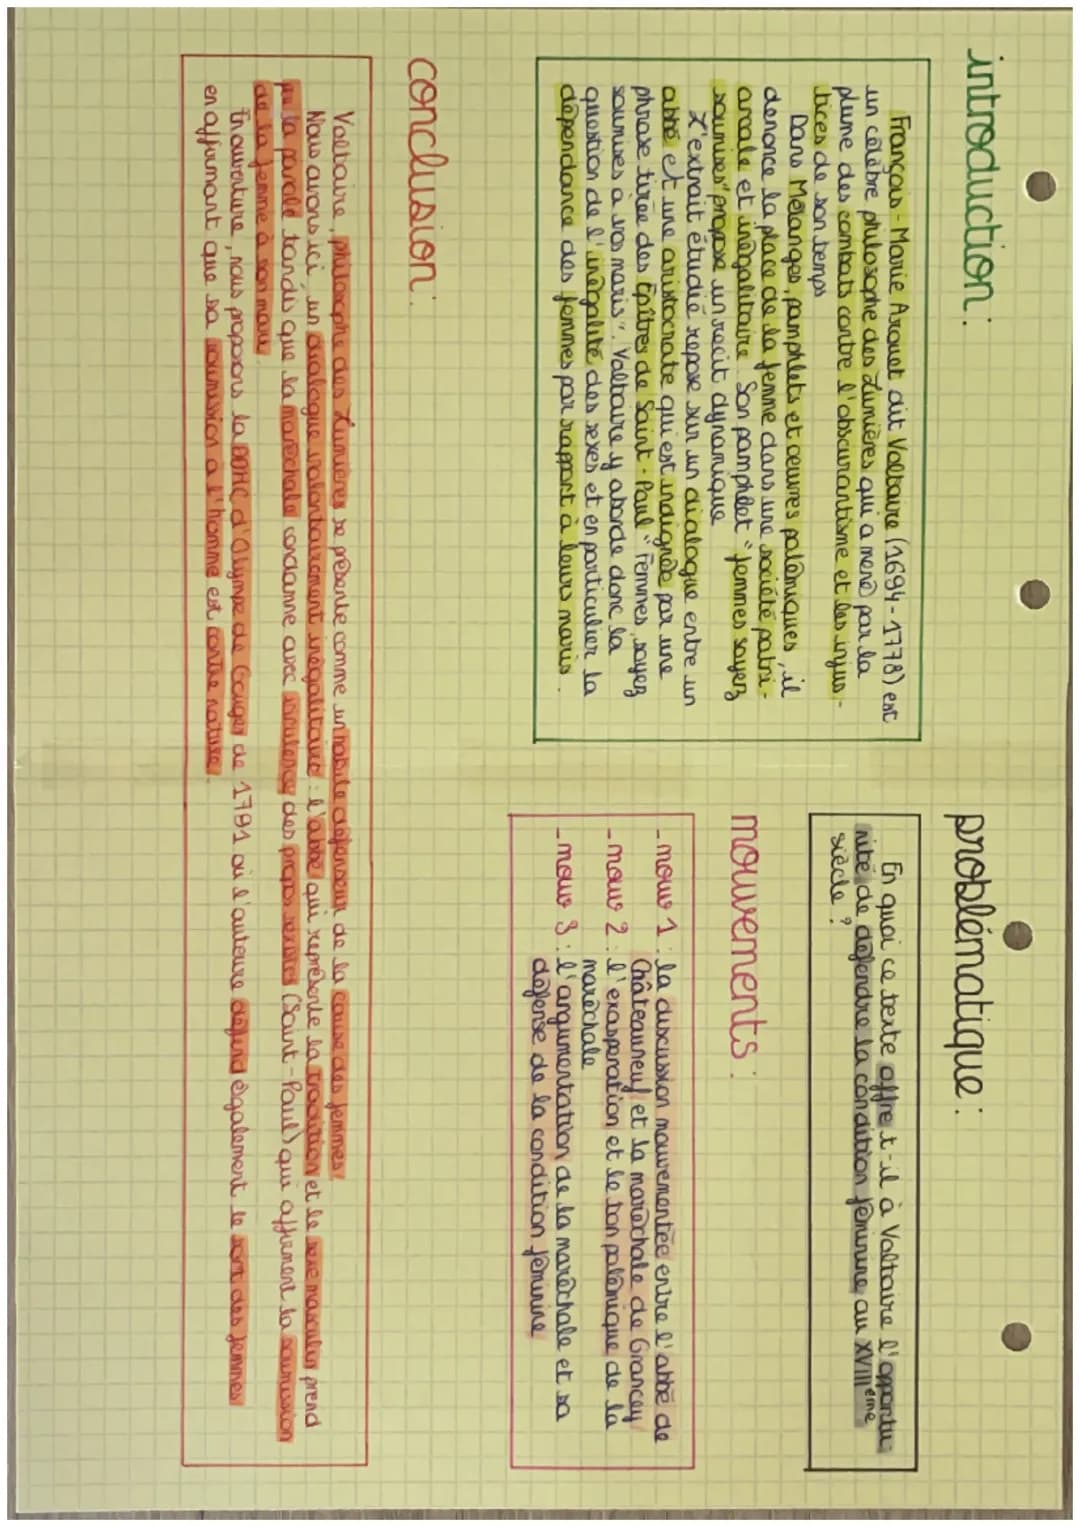 introduction :
François - Marie Arouet dit Voltaire (1694-1778) est
un célèbre philosophe des Lumières qui a mené par la
plume des combats contre l'obscurantisme et les injus-
tices de son temps
Dans Mélanges, pamphlets et œuvres polémiques, il
denonce la place de la femme dans une société patri-
arcale et inégalitaire. Son pamphlet "femmes soyez
soumises" propose un recit dynamique
L'extrait étudié repose sur un dialogue entre un
abbé et une aristocrate qui est indignée par une
phrase tirée des Epîtres de Saint-Paul "Femmes, soyez
soumises à vos maris". Voltaire y aborde donc la
question de l'inégalité des sexes et en particulier la
dépendance des femmes par rapport à leurs maris.
problématique :
En quoi ce texte offre t-il à Voltaire l'opportu
nité de défendre la condition féminine au XVIIIème
siècle ?
mouvements :
- mouv 1 : la discussion mouvementée entre l'abbé de
Châteauneuf et la maréchale de Grancey
- mouv 2 : l'exaspération et le ton polémique de la
maréchale
- mouv 3 : l'argumentation de la maréchale et sa
défense de la condition féminine
conclusion :
Voltaire, philosophe des Lumières se présente comme un habile défenseur de la cause des femmes.
Nous avons ici, un dialogue volontairement inégalitaire : l'abbé qui représente la tradition et le sexe masculin prend
peu la parole tandis que la maréchale condamne avec virulence des propos sexistes (Saint-Paul) qui affirment la soumission
de la femme à son mari.
En ouverture, nous proposons la DDFC d'Olympe de Gouges de 1791 où l'auteure défend également le sort des femmes
en affirmant que sa soumission à l'homme est contre nature.